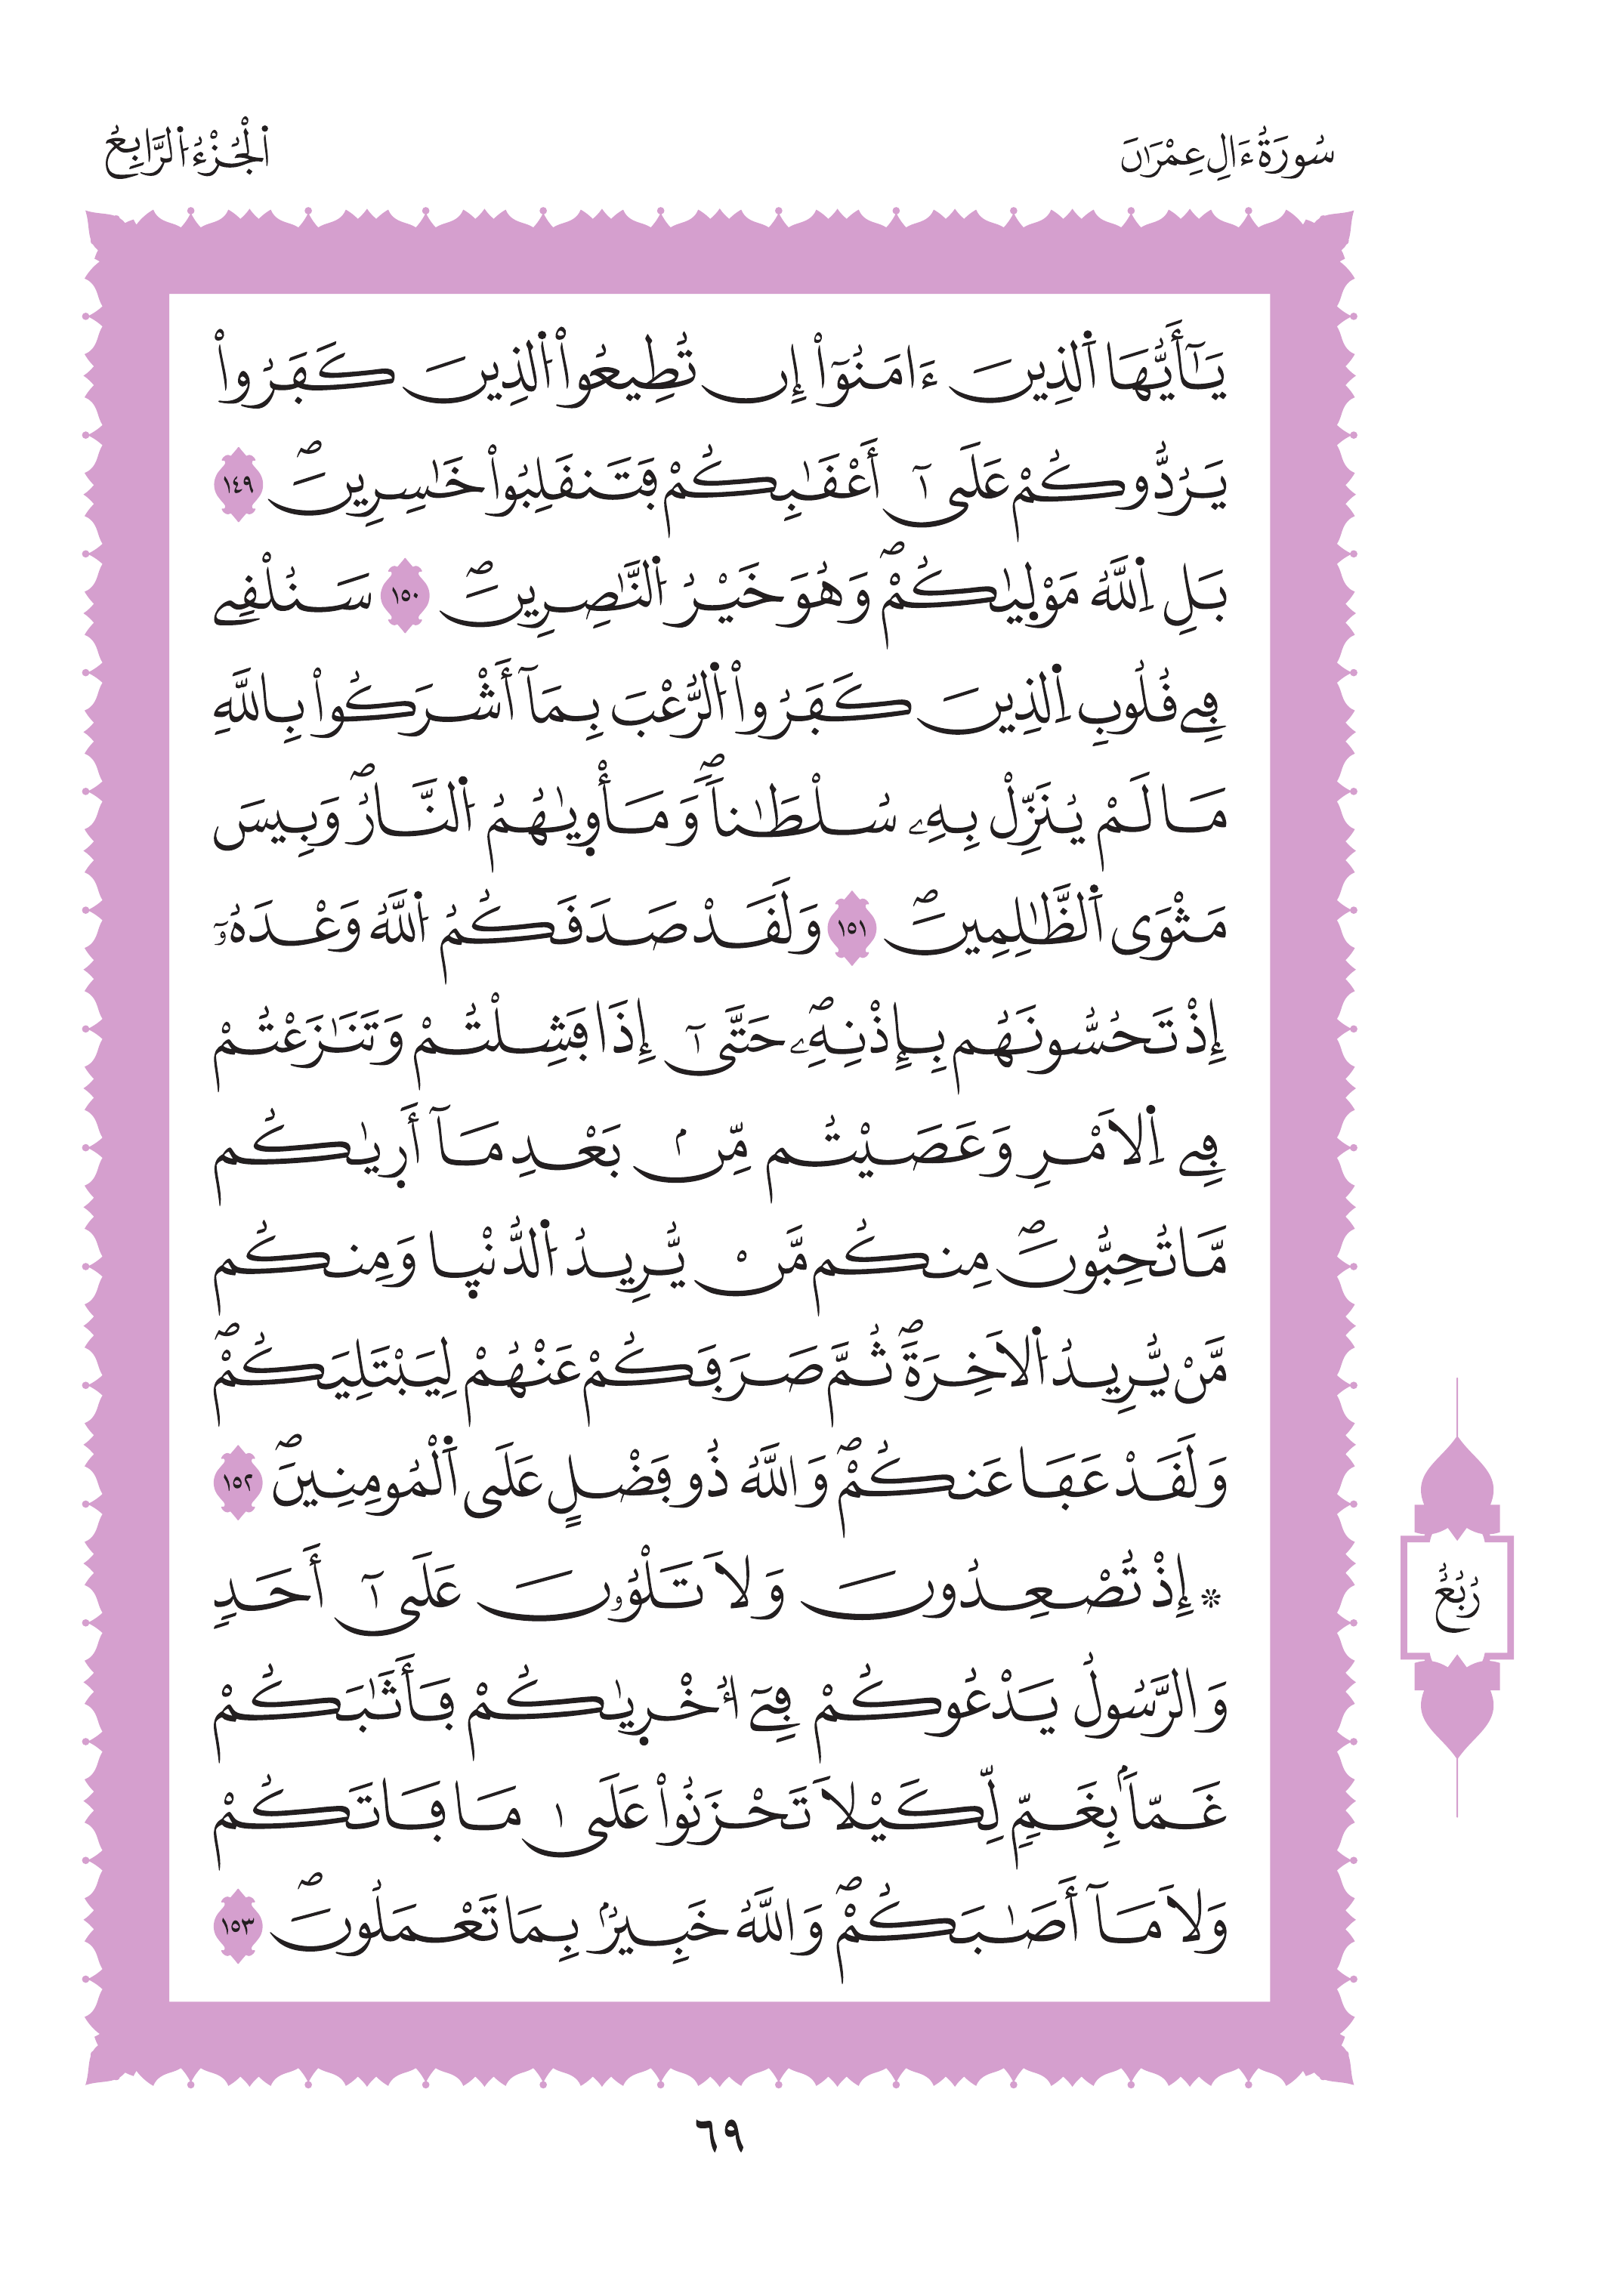 سُورَةُ ءَالِ عِمْرَٰنَ
اَ۬لْجُزْءُ اُ۬لرَّابِعُ
يَٰٓأَيُّهَا اَ۬لذِينَ ءَامَنُوٓاْ إِن تُطِيعُواْ اُ۬لذِينَ كَفَرُواْ
يَرُدُّوكُمْ عَلَىٰٓ أَعْقَٰبِكُمْ فَتَنقَلِبُواْ خَٰسِرِينَۖ ١٤٩
بَلِ اِ۬للَّهُ مَوْل۪يٰكُمْۖ وَهُوَ خَيْرُ اُ۬لنَّٰصِرِينَۖ ١٥٠ سَنُلْقِے
فِے قُلُوبِ اِ۬لذِينَ كَفَرُواْ اُ۬لرُّعْبَ بِمَآ أَشْرَكُواْ بِاللَّهِ
مَا لَمْ يُنَزِّلْ بِهِۦ سُلْطَٰناٗۖ وَمَأْو۪يٰهُمُ اُ۬لنَّارُۖ وَبِيسَ
مَثْوَى اَ۬لظَّٰلِمِينَۖ ١٥١ وَلَقَدْ صَدَقَكُمُ اُ۬للَّهُ وَعْدَهُۥٓ
إِذْ تَحُسُّونَهُم بِإِذْنِهِۦۖ حَتَّىٰٓ إِذَا فَشِلْتُمْ وَتَنَٰزَعْتُمْ
فِے اِ۬لَامْرِ وَعَصَيْتُم مِّنۢ بَعْدِ مَآ أَر۪يٰكُم
مَّا تُحِبُّونَۖ مِنكُم مَّنْ يُّرِيدُ اُ۬لدُّنْي۪ا وَمِنكُم
مَّنْ يُّرِيدُ اُ۬لَاخِرَةَۖ ثُمَّ صَرَفَكُمْ عَنْهُمْ لِيَبْتَلِيَكُمْۖ
وَلَقَدْ عَفَا عَنكُمْۖ وَاللَّهُ ذُو فَضْلٍ عَلَى اَ۬لْمُومِنِينَۖ ١٥٢
* إِذْ تُصْعِدُونَ وَلَا تَلْوُۥنَ عَلَىٰٓ أَحَدٖ
وَالرَّسُولُ يَدْعُوكُمْ فِےٓ أُخْر۪يٰكُمْ فَأَثَٰبَكُمْ
غَمّاَۢ بِغَمّٖ لِّكَيْلَا تَحْزَنُواْ عَلَىٰ مَا فَاتَكُمْ
وَلَا مَآ أَصَٰبَكُمْۖ وَاللَّهُ خَبِيرُۢ بِمَا تَعْمَلُونَۖ ١٥٣
رُبُعُ
٦٩